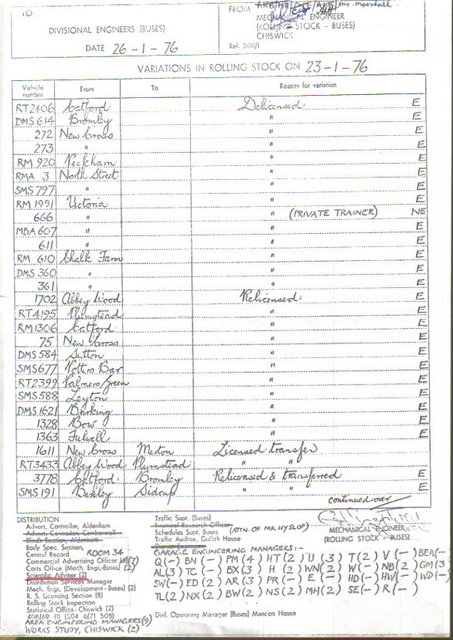 TO
DIVISIONAL ENGINEERS (BUSES)
DATE 26-1-76
FROM
MECHANICAL ENGINEER
(ROLLING STOCK - BUSES)
CHISWICK
Ref. 500/1
VARIATIONS IN ROLLING STOCK ON 23-1-76
Vehicle number From To Reason for variation
RT2406 Catford Delicensed E
DMS 614 Bromley " E
272 New Cross " E
273 " " E
RM 920 Peckham " E
RMA 3 North Street " E
SMS 797 " " E
RM 1991 Victoria " E
666 " " (PRIVATE TRAINER) NE
MBA 607 " " E
611 " " E
RM 610 Chalk Farm " E
DMS 360 " " E
361 " " E
1702 Abbey Wood Relicensed E
RT4195 Plumstead " E
RM1306 Catford " E
75 New Cross " E
DMS 584 Sutton " E
SMS 677 Potters Bar " E
RT2399 Palmers Green " E
SMS 588 Leyton " E
DMS 1621 Barking " E
1328 Bow " E
1363 Fulwell " E
1611 New Cross Merton Licensed transfer
RT3433 Abbey Wood Plumstead " "
3778 Catford Bromley Relicensed & transferred E
SMS 191 Bexley Sidcup " " E
continued over
DISTRIBUTION
Advert. Controller, Aldenham
Body Spec. Section,
Central Record ROOM 34
Commercial Advertising Officer
Costs Office (Mech. Engr. Buses) (2)
Scientific Adviser (2)
Distribution Services Manager
Mech. Engr. (Development - Buses) (2)
R. S. Licensing Section (8)
Rolling Stock Inspection
Statistical Office - Chiswick (2)
AREA ENGINEERING MANAGERS (9)
WORKS STUDY, CHISWICK (2)
Traffic Supt. (Buses)
Financial Research Officer
Schedules Supt. Buses (ATTN. OF MR HYSLOP)
Traffic Auditor, Effra House
MECHANICAL ENGINEER
(ROLLING STOCK - BUSES)
GARAGE ENGINEERING MANAGERS:-
Q(-) BN(-) PM(4) HT(2) U(3) T(2) V(-)
AL(3) TC(-) BX(3) H(2) WN(2) W(-) NB(2) GM(3)
SW(-) ED(2) AR(3) PR(-) E(-) HD(-) HW(-) WD(-)
TL(2) NX(2) BW(2) NS(2) MH(2) SE(-) R(-)
Divl. Operating Manager (Buses) Mansion House